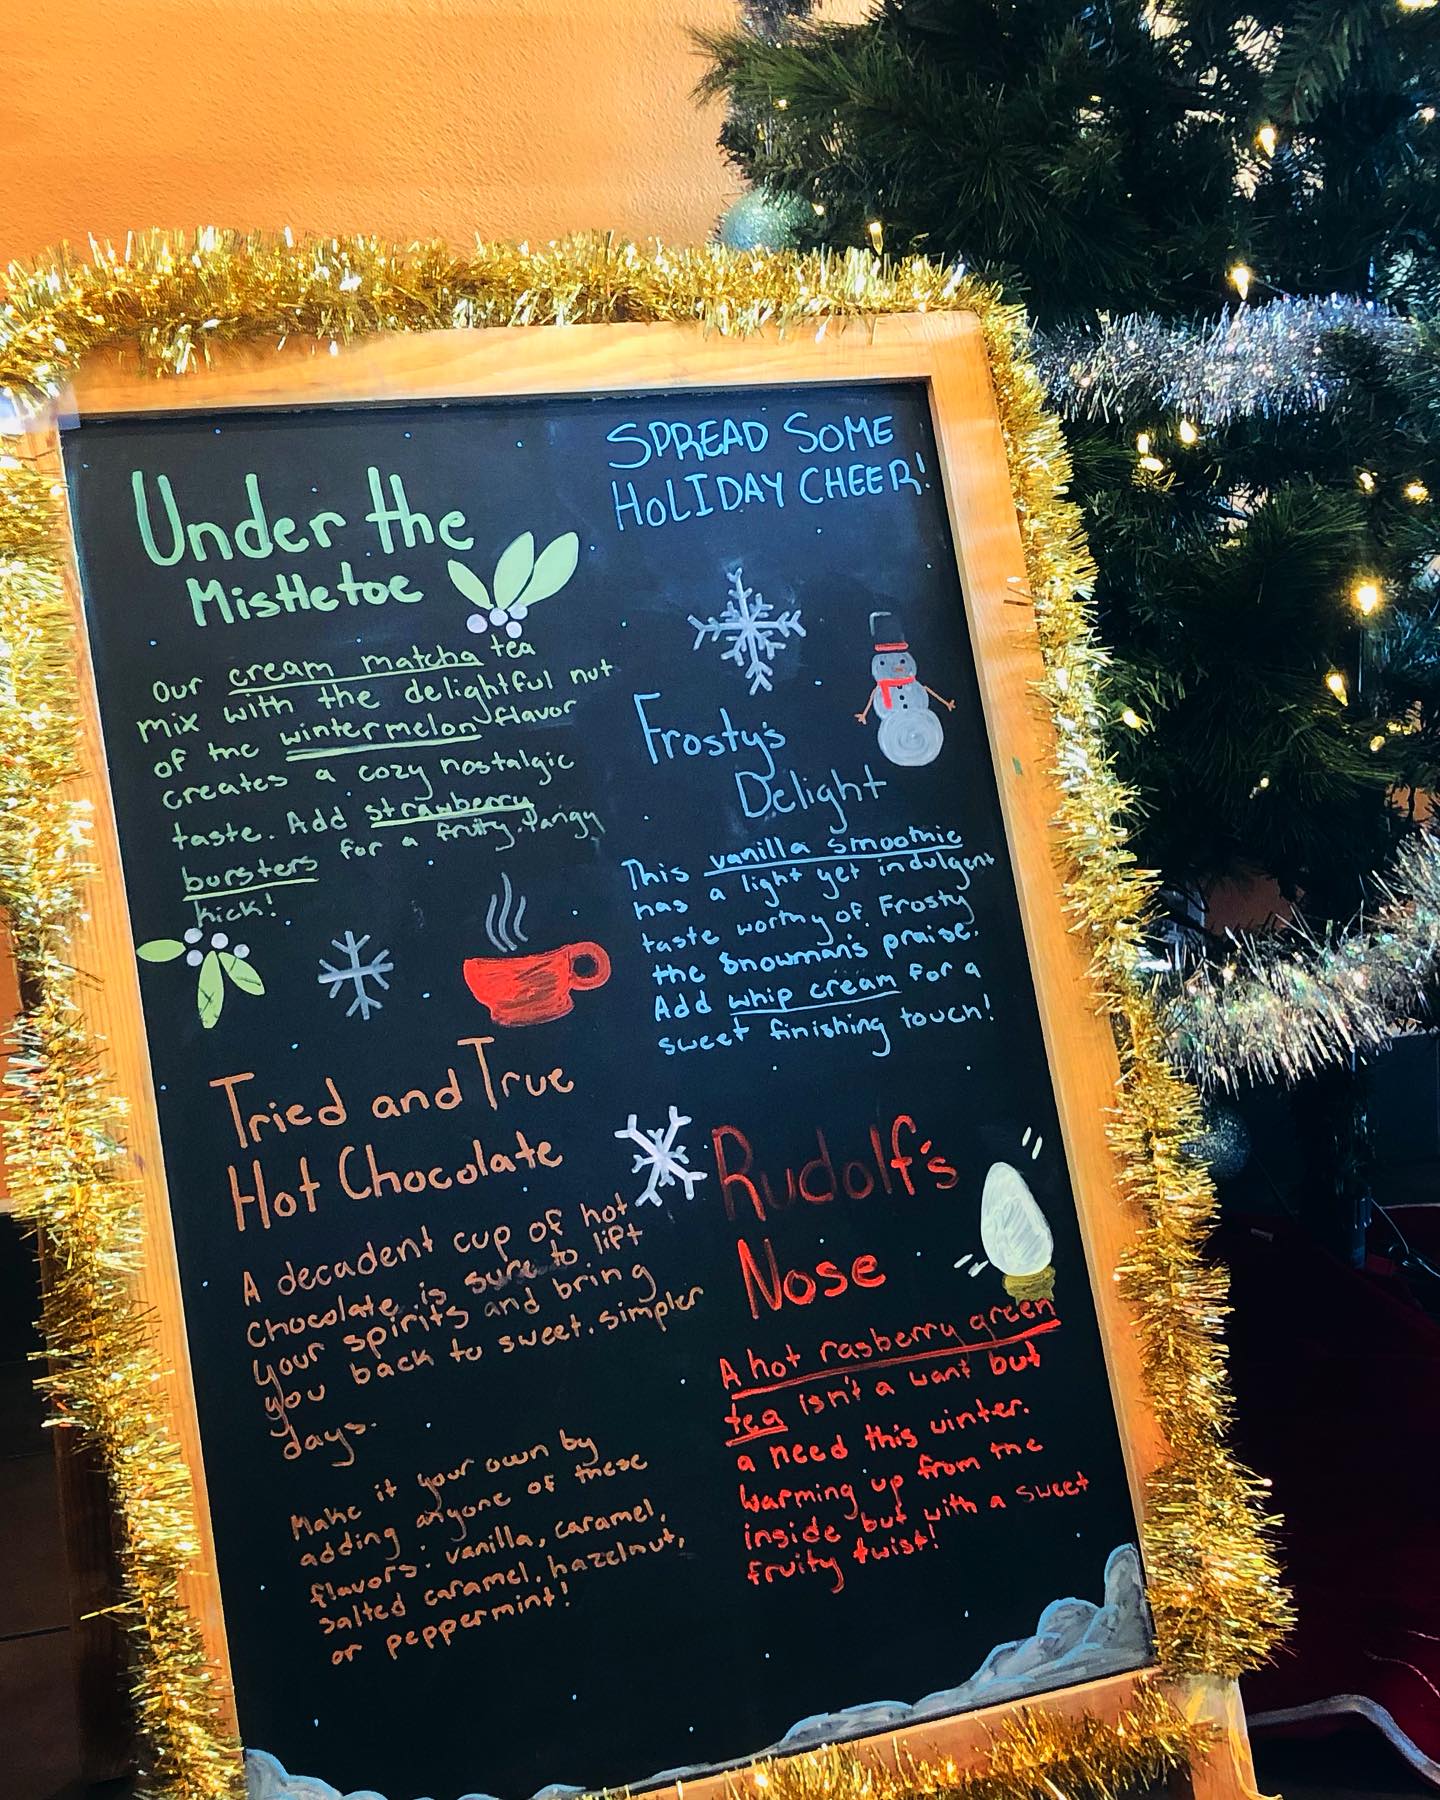 Under the
Mistletoe
Our cream matcha tea
mix with the delightful nut
of the wintermelon flavor
creates a cozy nostalgic
taste. Add strawberry
bursters for a fruity, tangy
kick!
SPREAD SOME
HOLIDAY CHEER!
Frosty's
Delight
This vanilla smoothie
has a light yet indulgent
taste worthy of Frosty
the Snowman's praise.
Add whip cream for a
sweet finishing touch!
Tried and True
Hot Chocolate
A decadent cup of hot
chocolate is sure to lift
your spirits and bring
you back to sweet, simpler
days.
Make it your own by
adding anyone of these
flavors: vanilla, caramel,
salted caramel, hazelnut,
or peppermint!
Rudolf's
Nose
A hot rasberry green
tea isn't a want but
a need this winter.
Warming up from the
inside but with a sweet
fruity twist!